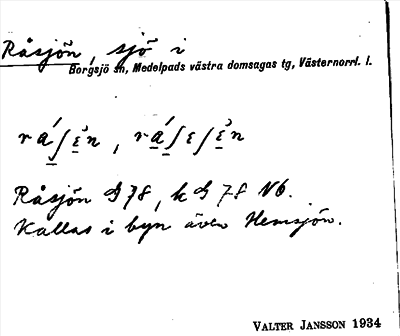 Råsjön, sjö i
Borgsjö sn, Medelpads västra domsagas tg, Västernorrl. l.
Råsjön G 78, k G 78 Nb.
Kallas i byn även Hemsjön.
VALTER JANSSON 1934